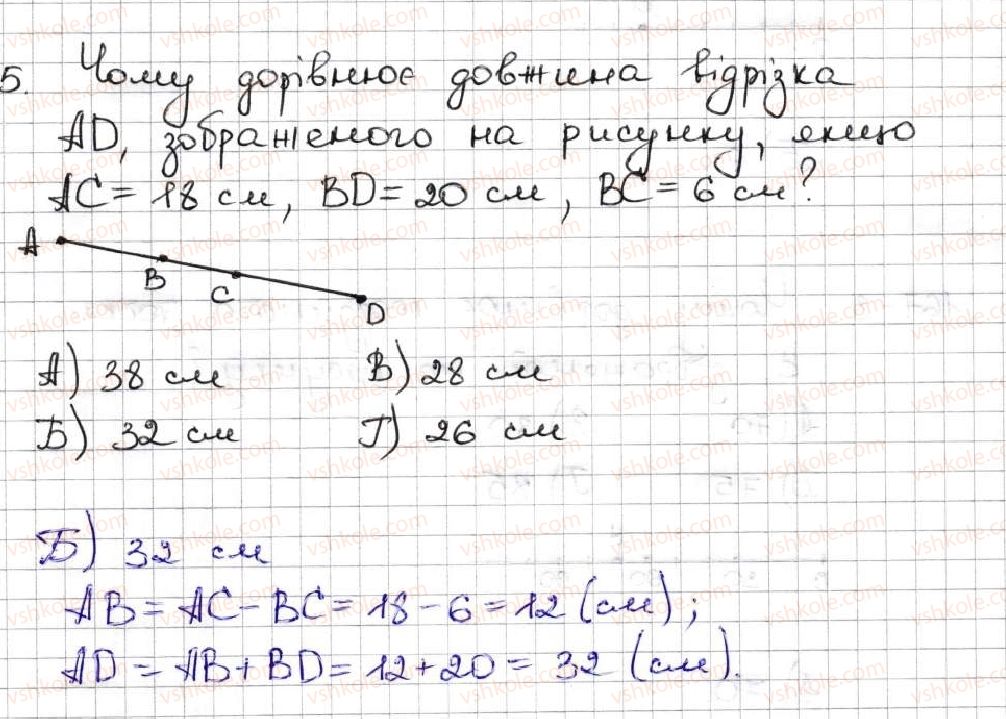 5. Чому дорівнює довжина відрізка
AD, зображеного на рисунку, якщо
AC = 18 см, BD = 20 см, BC = 6 см?
A
B
C
D
А) 38 см В) 28 см
Б) 32 см Г) 26 см
Б) 32 см
AB = AC - BC = 18 - 6 = 12 (см);
AD = AB + BD = 12 + 20 = 32 (см).
vshkole.com